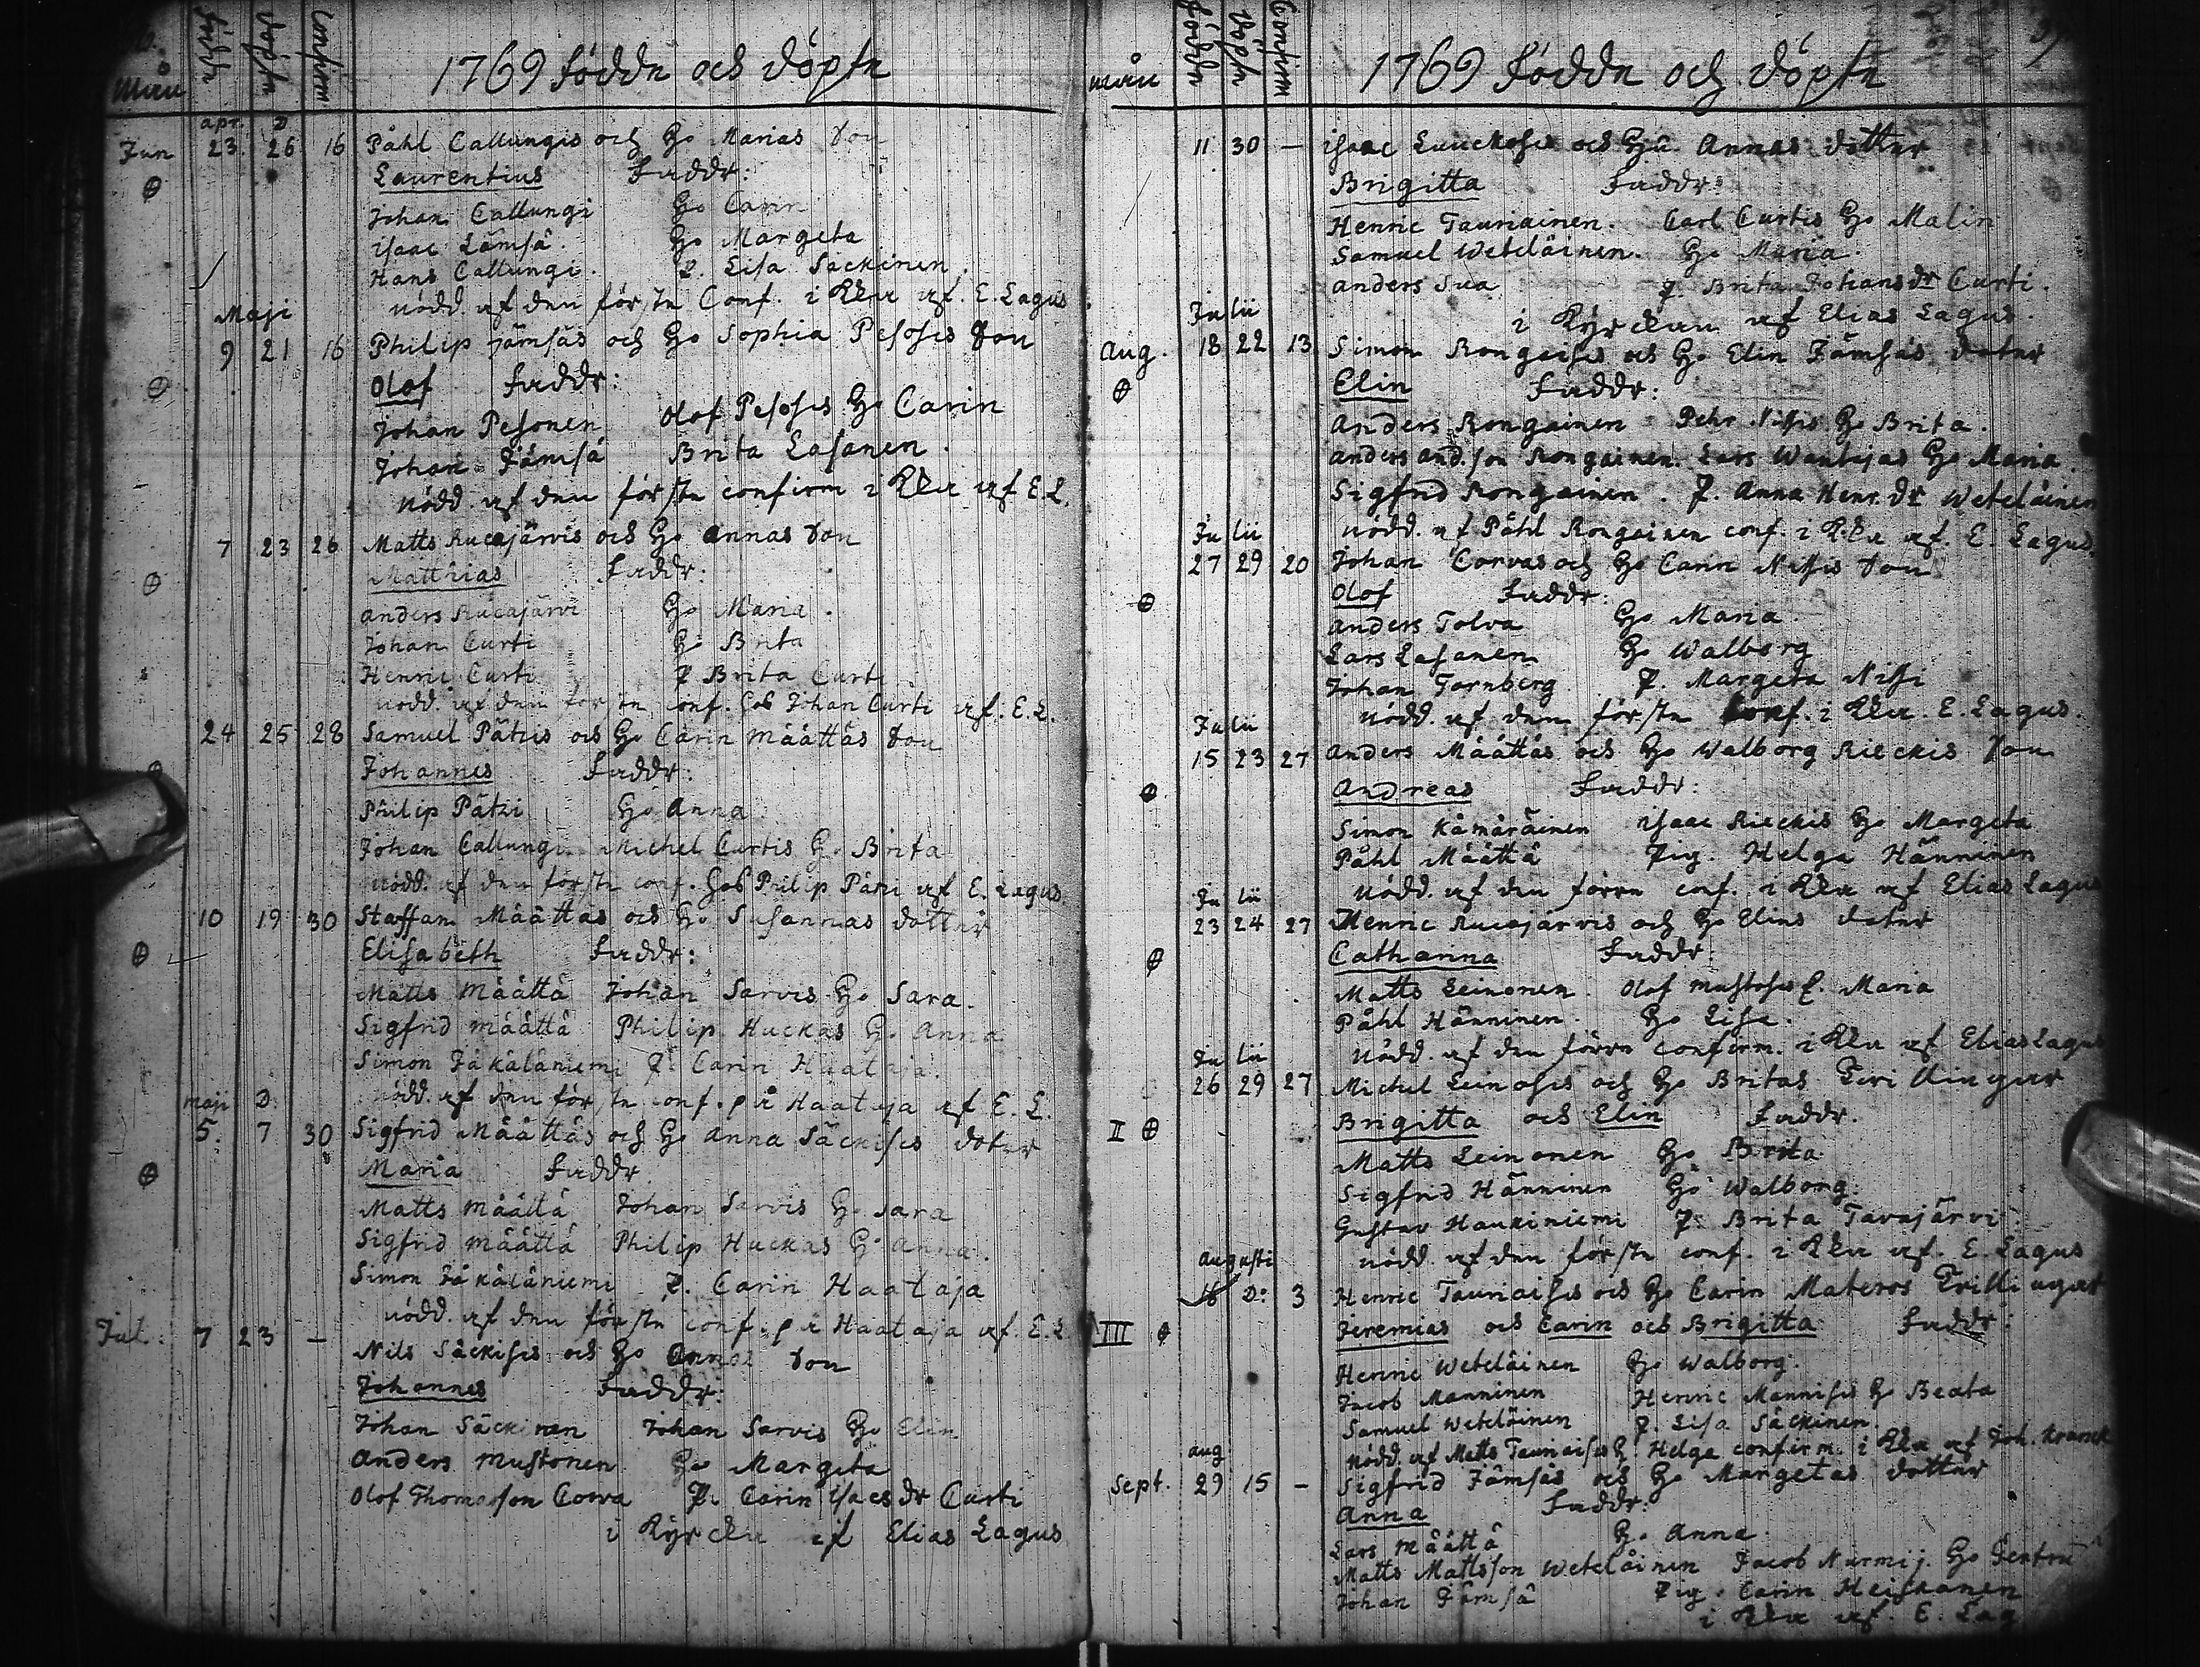 Mån
födde
döpte
Confirm
1769 födde och döpte
apr. D
Jun 23. 26 16 Påhl Callungis och Ho Marias Son
Laurentius Faddr:
Johan Callungi Ho Carin
Isaac Lämsä. Ho Margeta
Hans Callungi. P. Lisa Säckinen.
nödd. af den förste Conf. i Kka af. E. Lagus
Maji
9 21 16 Philip Jämsäs och Ho Sophia Pesosis Son
Olof Faddr:
Johan Pesonen Olof Pesosis Ho Carin
Johan Jämsä Brita Lasanen.
nödd. af den förste confirm i Kka af E.L.
7 23 26 Matts Rucajärvis och Ho Annas Son
Matthias Faddr:
Anders Rucajärvi Ho Maria.
Johan Curti Ho Brita
Henric Curti P Brita Curti
nödd. af den förste conf. hos Johan Curti af. E.L.
24 25 28 Samuel Pätzis och Ho Carin Määttäs Son
Johannes Faddr:
Philip Pätzi Ho Anna
Johan Callungi Michel Curtis Ho Brita
nödd. af den förste conf. hos Philip Pätzi af E. Lagus.
10 19 30 Staffan Määttäs och Ho Susannas dotter
Elisabeth Faddr:
Matts Määttä Johan Sarvis Ho Sara.
Sigfrid Määttä Philip Huckas Ho Anna
Simon Jäkäläniemi P. Carin Haataja.
nödd. af den förste conf. på Haataja af E. L.
Maji D.
5. 7 30 Sigfrid Määttäs och Ho Anna Säckisis doter
Maria Faddr
Matts Määttä Johan Sarvis Ho Sara
Sigfrid Määttä Philip Huckas Ho Anna.
Simon Jäkäläniemi P. Carin Haataja
nödd. af den förste conf. på Haataja af. E.L
Jul. 7 23 – Nils Säckisis och Ho Annas Son
Johannes Faddr:
Johan Säckinen Johan Sarvis Ho Elin
Anders Mustonen Ho Margeta
Olof Thomasson Corva P. Carin Isacs dr Curti
i Kyrckan af Elias Lagus
mån
födde
döpte
Confirm
1769 födde och döpte
11 30 – Isaac Luuckosis och Hu Annas dotter
Brigitta Faddr:
Henric Tauriainen. Carl Curtis Ho Malin
Samuel Weteläinen. Ho Maria.
Anders Sua P. Brita Johans dr Curti.
i Kyrckan af Elias Lagus.
Julii
Aug. 18 22 13 Simon Rongaisis och Ho Elin Jämsäs doter
Elin Faddr:
Anders Rongainen Pehr Nissis Ho Brita.
Anders And.son Rongainen. Lars Ho Maria.
Sigfrid Rongainen. P. Anna Henr. dr Weteläinen
nödd. af Påhl Rongainen conf. i Kka af. E. Lagus.
Julii
27 29 20 Johan Corvas och Ho Carin Nissis Son
Olof Faddr.
Anders Tolva Ho Maria.
Lars Lasanen Ho Walborg
Johan Tornberg P. Margeta Nissi
nödd. af den förste Conf. i Kka. E. Lagus.
Julii
15 23 27 Anders Määttäs och Ho Walborg Rieckis Son
Andreas Faddr:
Simon Kämäräinen Isaac Rieckis Ho Margeta
Påhl Määttä Pig. Helga Hänninen
nödd. af den förra conf. i Kka af Elias Lagus
Julii
23 24 27 Henric Rucajärvis och Ho Elins doter
Catharina Faddr:
Matts Leinonen. Olof Mustosis E. Maria
Påhl Hänninen. Ho Lisa.
nödd. af den förra confirm. i Kka af Elias Lagus
Julii
26 29 27 Michel Leinosis och Ho Britas Tvillingar
II Brigitta och Elin Faddr.
Matts Leinonen Ho Brita
Sigfrid Hänninen Ho Walborg.
Gustav Haukiniemi P. Brita Tavajärvi.
nödd. af den förste conf. i Kka af. E. Lagus
Augusti
16 D: 3 Henric Tauriaisis och Ho Carin Materos Trillingar
III Jeremias och Carin och Brigitta Faddr:
Henric Weteläinen Ho Walborg.
Jacob Manninen Henric Mannisis Ho Beata
Samuel Weteläinen P. Lisa Säckinen.
nödd. af Matts Tauriaisis H. Helga confirm. i Kka af Joh.
aug
Sept. 29 15 – Sigfrid Jämsäs och Ho Margetas dotter
Anna Faddr:
Lars Määttä Ho Anna.
Matts Mattsson Weteläinen Jacob Nurmij. Ho
Johan Jämsä Pig. Carin Heiskanen
i Kka af. E. Lag